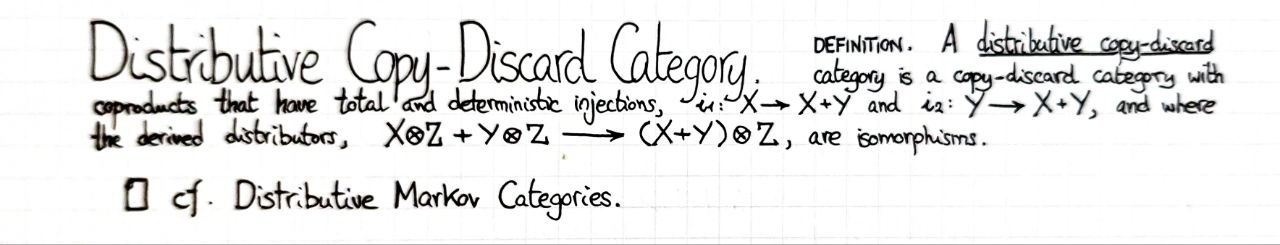 Distributive Copy-Discard Category. DEFINITION. A distributive copy-discard
category is a copy-discard category with
coproducts that have total and deterministic injections, i₁: X → X+Y and i₂: Y → X+Y, and where
the derived distributors, X⊗Z + Y⊗Z → (X+Y)⊗Z, are isomorphisms.
□ cf. Distributive Markov Categories.